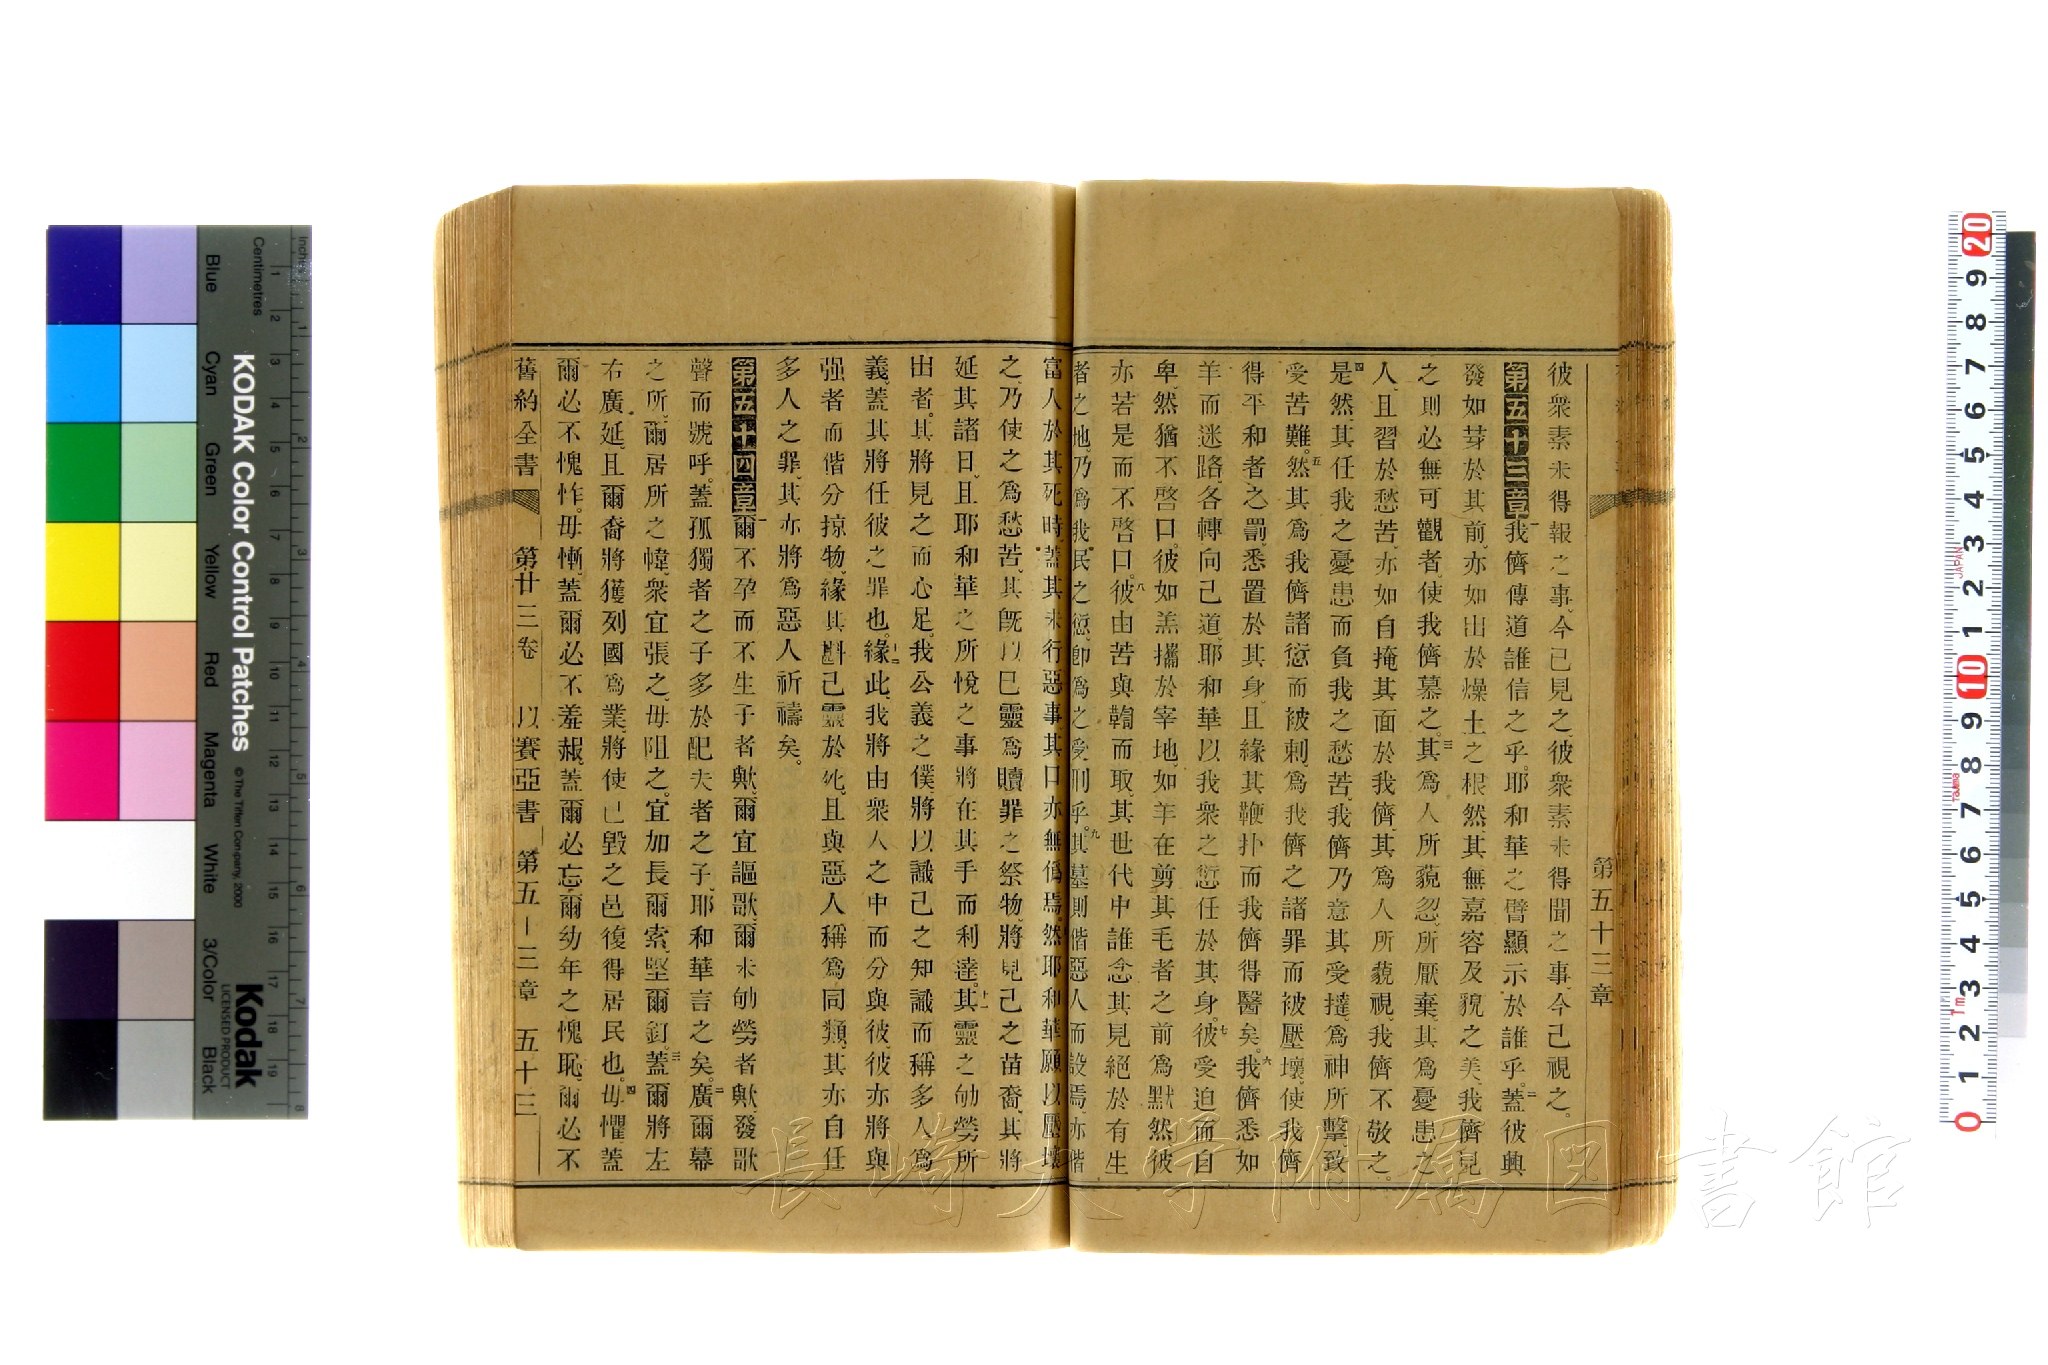 第五十三章
彼衆素未得報之事、今已見之、彼衆素未得聞之事、今已視之。
第五十三章 一我儕傳道誰信之乎。耶和華之臂顯示於誰乎。二蓋彼興
發如芽於其前、亦如出於燥土之根然、其無嘉容及貌之美、我儕見
之則必無可觀者、使我儕慕之。三其爲人所藐忽、所厭棄、其爲憂患之
人、且習於愁苦、亦如自掩其面於我儕、其爲人所藐視、我儕不敬之。
四是然其任我之憂患而負我之愁苦、我儕乃意其受撻、爲神所擊、致
受苦難。五然其爲我儕諸愆而被刺、爲我儕之諸罪而被壓壞、使我儕
得平和者之罰、悉置於其身、且緣其鞭扑而我儕得醫矣。六我儕悉如
羊而迷路、各轉向己道、耶和華以我衆之愆任於其身。七彼受迫而自
卑、然猶不啓口。彼如羔攜於宰地、如羊在剪其毛者之前爲默然、彼
亦若是而不啓口。八彼由苦與鞫而取、其世代中誰念其見絕於有生
者之地。乃爲我民之愆、卽爲之受刑乎。九其墓則偕惡人而設焉、亦偕
富人於其死時、蓋其未行惡事、其口亦無僞焉。然耶和華願以壓壞
之、乃使之爲愁苦、其旣以己靈爲贖罪之祭物、將見己之苗裔、其將
延其諸日、且耶和華之所悅之事將在其手而利達。十一其靈之劬勞所
出者、其將見之而心足、我公義之僕、將以識己之知識而稱多人爲
義、蓋其將任彼之罪也。十二緣此、我將由衆人之中而分與彼、彼亦將與
强者而偕分掠物、緣其斟己靈於死、且與惡人稱爲同類、其亦自任
多人之罪、其亦將爲惡人祈禱矣。
第五十四章 一爾不孕而不生子者歟、爾宜謳歌、爾未劬勞者歟、發歌
聲而號呼。蓋孤獨者之子多於配夫者之子、耶和華言之矣。二廣爾幕
之所、爾居所之幃、衆宜張之、毋阻之。宜加長爾索、堅爾釘。三蓋爾將左
右廣延、且爾裔將獲列國爲業、將使已毀之邑復得居民也。四毋懼、蓋
爾必不愧怍。毋慚、蓋爾必不羞赧、蓋爾必忘爾幼年之愧恥、爾必不
舊約全書 第廿三卷 以賽亞書 第五十三章 五十三
長崎大学附属図書館
KODAK Color Control Patches
© The Tiffen Company, 2000
Kodak
LICENSED PRODUCT
Inches
Centimetres
Blue
Cyan
Green
Yellow
Red
Magenta
White
3/Color
Black
JAPAN